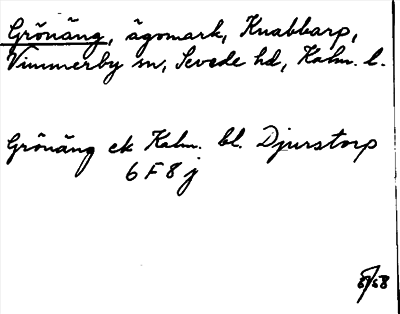 Grönäng, ägomark, Knabbarp,
Vimmerby sn, Sevede hd, Kalm. l.
Grönäng ek Kalm. bl. Djurstorp
6 F 8 j